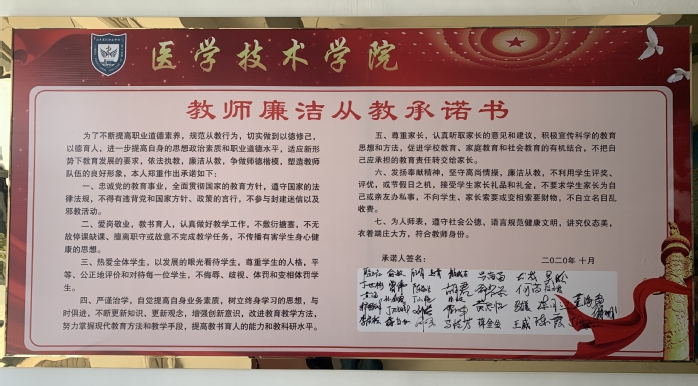 医学技术学院
教师廉洁从教承诺书
为了不断提高职业道德素养，规范从教行为，切实做到以德修己，
以德育人，进一步提高自身的思想政治素质和职业道德水平，适应新形
势下教育发展的要求，依法执教，廉洁从教，争做师德楷模，塑造教师
队伍的良好形象，本人郑重作出承诺如下：
一、忠诚党的教育事业，全面贯彻国家的教育方针，遵守国家的法
律法规，不得有违背党和国家方针、政策的言行，不参与封建迷信以及
邪教活动。
二、爱岗敬业，教书育人，认真做好教学工作，不敷衍搪塞，不无
故停课缺课、擅离职守或故意不完成教学任务，不传播有害学生身心健
康的思想。
三、热爱全体学生，以发展的眼光看待学生，尊重学生的人格，平
等、公正地评价和对待每一位学生，不侮辱、歧视、体罚和变相体罚学
生。
四、严谨治学，自觉提高自身业务素质，树立终身学习的思想，与
时俱进，不断更新知识、更新观念，增强创新意识，改进教育教学方法，
努力掌握现代教育方法和教学手段，提高教书育人的能力和教科研水平。
五、尊重家长，认真听取家长的意见和建议，积极宣传科学的教育
思想和方法，促进学校教育、家庭教育和社会教育的有机结合，不把自
己应承担的教育责任转交给家长。
六、发扬奉献精神，坚守高尚情操，廉洁从教，不利用学生评奖、
评优，或节假日之机，接受学生家长礼品和礼金，不要求学生家长为自己
或亲友办私事，不向学生、家长索要或变相索要财物，不自立名目乱
收费。
七、为人师表，遵守社会公德，语言规范健康文明，讲究仪态美，
衣着端庄大方，符合教师身份。
承诺人签名：
二〇二〇年 十月